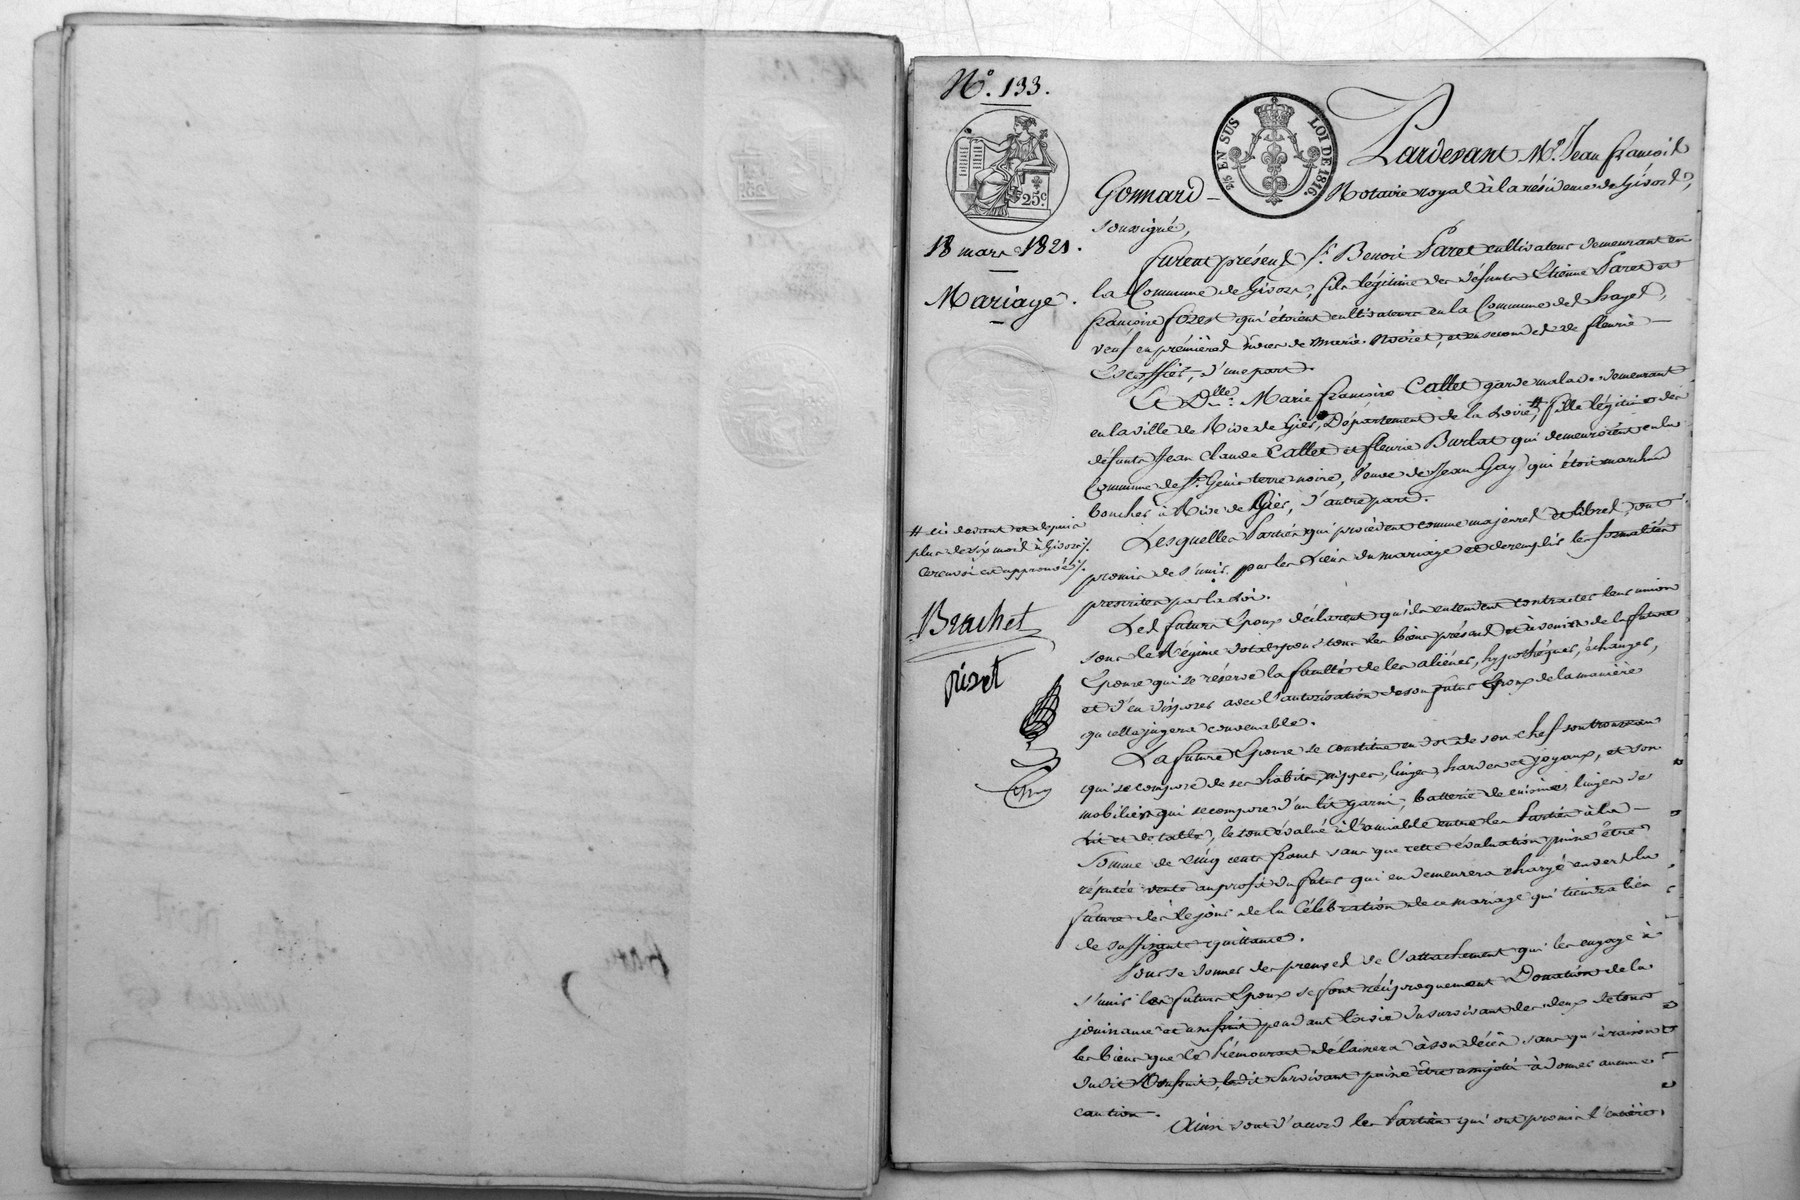 N.° 133.
25.c
5/6 EN SUS LOI DE 1816.
18 mars 1821.
Mariage.
Pardevant M.e Jean françois
Gonnard Notaire royal à la résidence de Givors,
soussigné,
furent présens S.r Benoit Paret cultivateur demeurant en
la Commune de Givors, fils légitime des défunts Etienne Paret et
françoise qui étoient cultivateurs en la Commune des hayes,
veuf en premières de Marie Noiret, et en secondes de fleurie
d'une part.
Et D.lle Marie françoise Callet garde malade demeurant
en la ville de Rive de Gier, Département de la Loire, # fille légitime des
défunts Jean Claude Callet et fleurie Burlat qui demeuroient en la
Commune de S.t Genis terre noire, veuve de Jean Gay qui étoit marchand
boucher à Rive de Gier, d'autre part.
# ci devant et depuis
plus de six mois à Givors ./.
ce renvoi est approuvé ./.
Brachet
Lesquelles Parties qui procèdent comme majeures et libres, ont
promis de s'unir par les Liens du mariage et de remplir les formalités
prescrites par la Loi.
Les futurs Epoux déclarent qu'ils entendent contracter leur union
sous le Régime dotal pour tous les biens présens et à venir de la future
Epouse qui se réserve la faculté de les aliéner, hypothéquer, échanger,
et d'en disposer avec l'autorisation de son futur Epoux de la manière
qu'elle jugera convenable.
La future Epouse se constitue en dot de son chef son trousseau
qui se compose de ses habits, nippes, linges, hardes et joyaux, et son
mobilier qui se compose d'un lit garni, batterie de cuisine, linges de
Lit et de table, le tout évalué à l'amiable entre les Parties à la
Somme de cinq cents francs sans que cette évaluation puisse être
réputée vente au profit du futur qui en demeurera chargé envers la
future dès le jour de la Célébration de ce mariage qui tiendra lieu
de suffisante quittance.
Pour se donner des preuves de l'attachement qui les engage à
s'unir les futurs Epoux se font réciproquement Donation de la
jouissance et usufruit pendant la vie du survivant des deux de tous
les biens que le Prémourant délaissera à son décès sans qu'à raison
dudit Usufruit, ledit Survivant puisse être assujetti à donner aucune
caution.
Ainsi sont d'accord les Parties qui ont promis l'entière